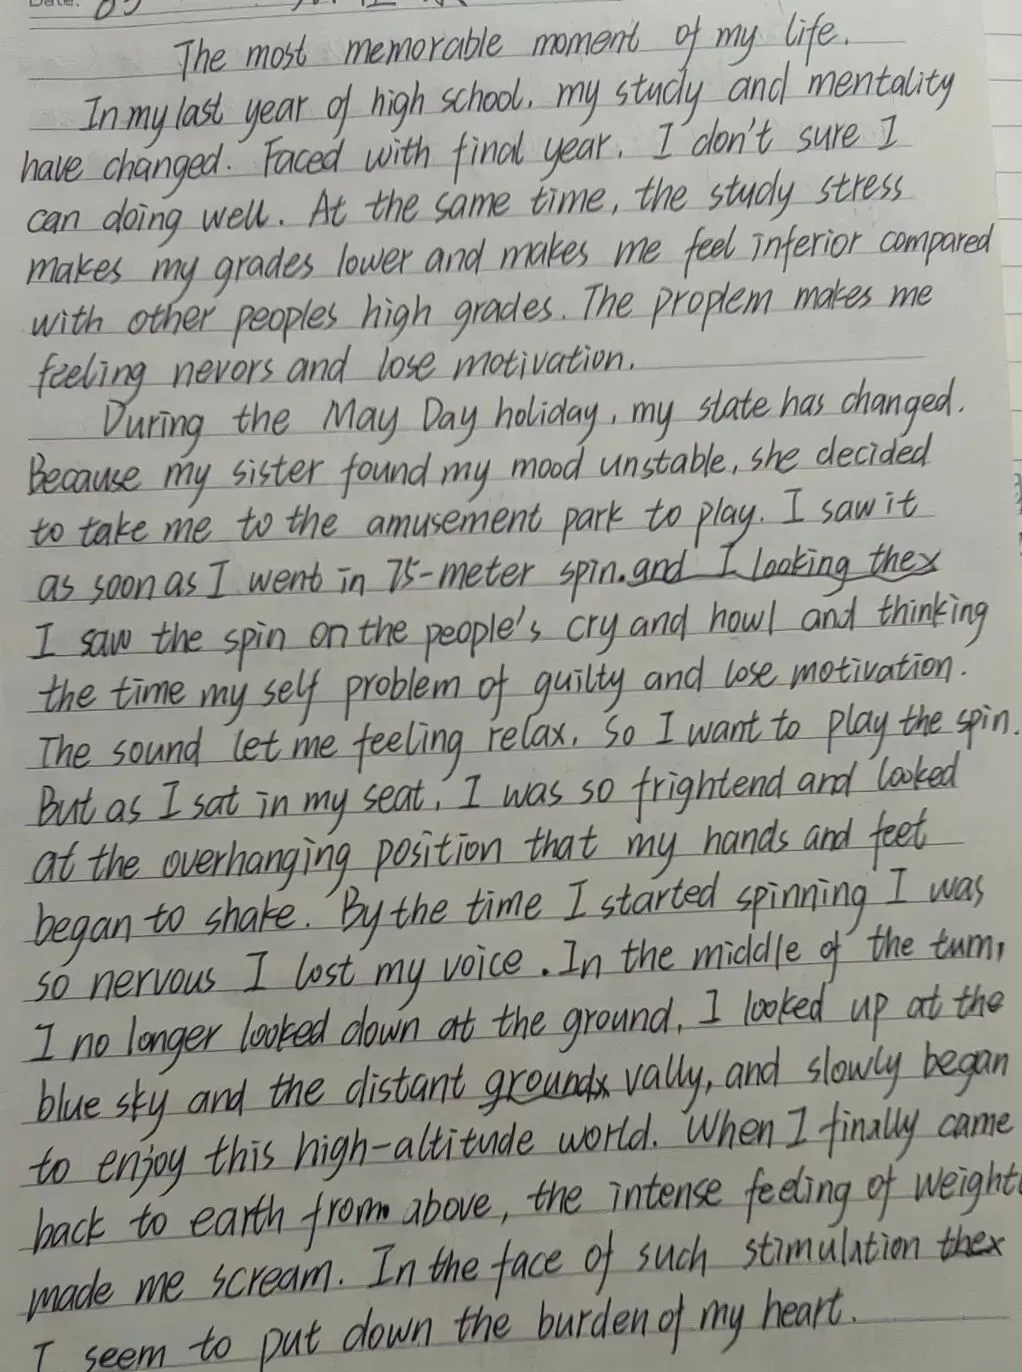 Date:
The most memorable moment of my life.
In my last year of high school, my study and mentality
have changed. Faced with final year, I don't sure I
can doing well. At the same time, the study stress
makes my grades lower and makes me feel inferior compared
with other peoples high grades. The proplem makes me
feeling nevors and lose motivation.
During the May Day holiday, my state has changed.
Because my sister found my mood unstable, she decided
to take me to the amusement park to play. I saw it
as soon as I went in 75-meter spin. and I looking the
I saw the spin on the people's cry and howl and thinking
the time my self problem of guilty and lose motivation.
The sound let me feeling relax, So I want to play the spin.
But as I sat in my seat, I was so frightend and looked
at the overhanging position that my hands and feet
began to shake. By the time I started spinning I was
so nervous I lost my voice. In the middle of the turn,
I no longer looked down at the ground, I looked up at the
blue sky and the distant ground vally, and slowly began
to enjoy this high-altitude world. When I finally came
back to earth from above, the intense feeling of weightl
made me scream. In the face of such stimulation the
I seem to put down the burden of my heart.